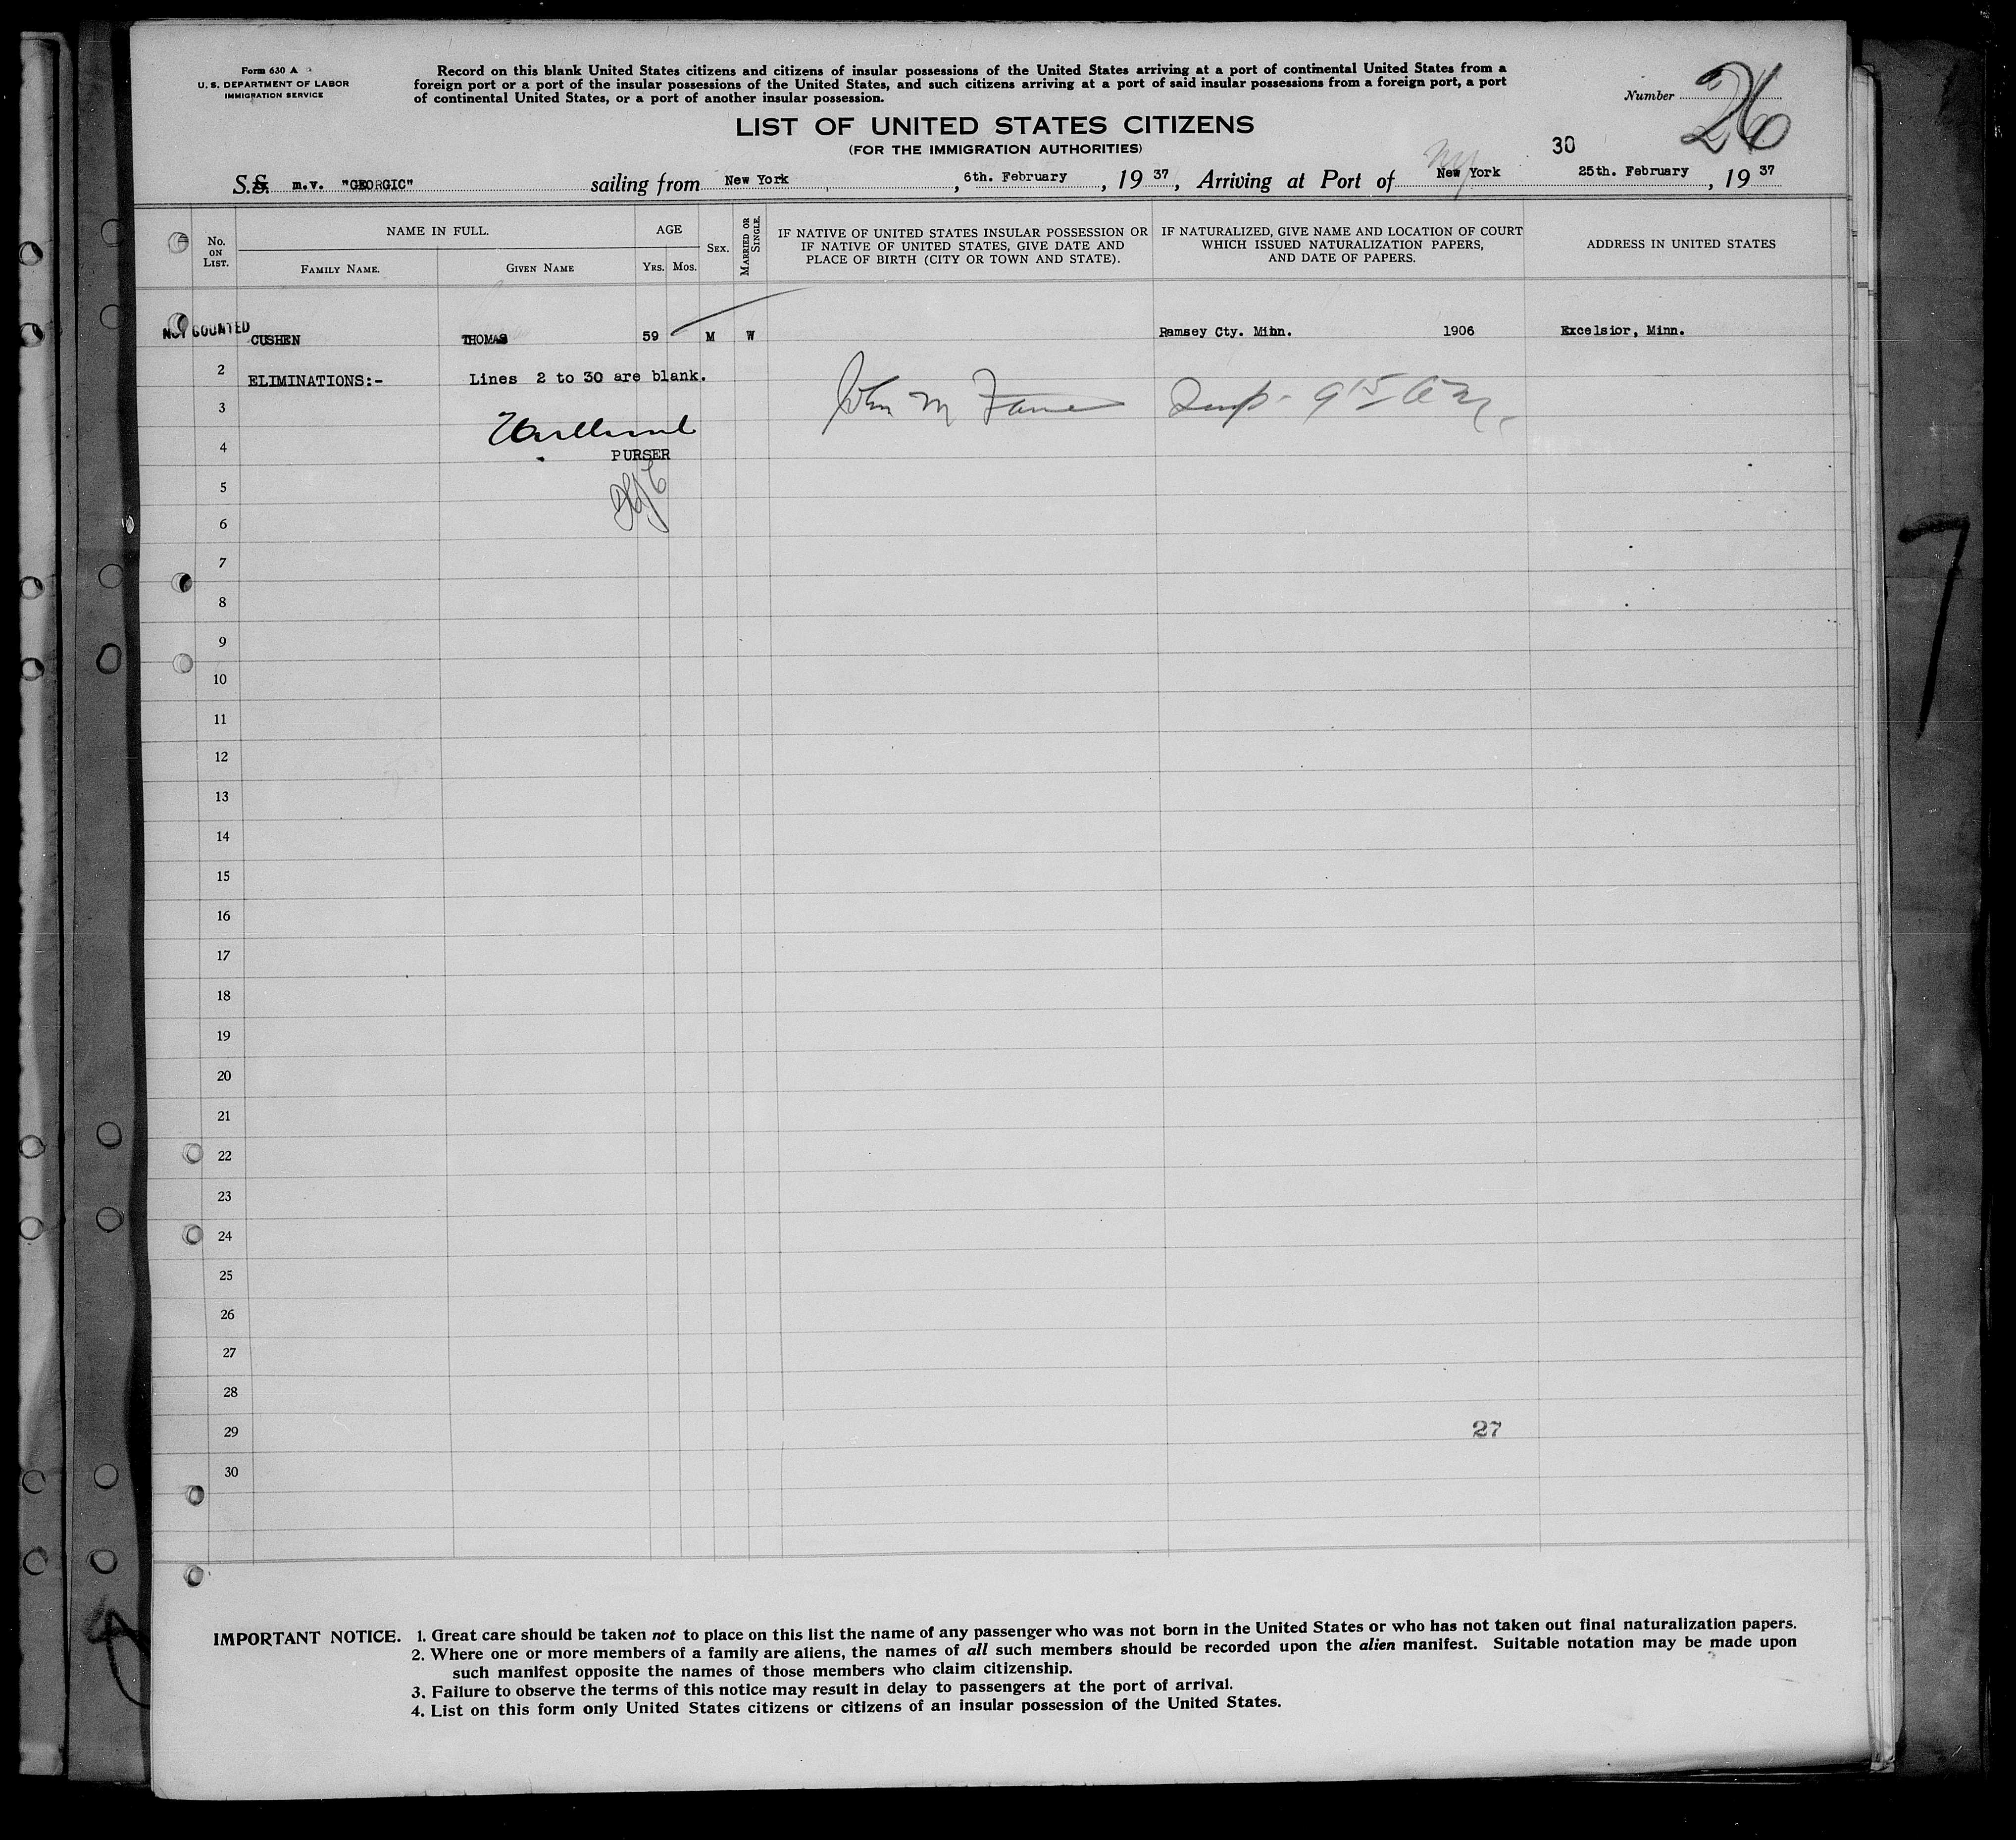 Form 630 A
U. S. DEPARTMENT OF LABOR
IMMIGRATION SERVICE
Record on this blank United States citizens and citizens of insular possessions of the United States arriving at a port of continental United States from a
foreign port or a port of the insular possessions of the United States, and such citizens arriving at a port of said insular possessions from a foreign port, a port
of continental United States, or a port of another insular possession.
Number 26
LIST OF UNITED STATES CITIZENS
(FOR THE IMMIGRATION AUTHORITIES)
30
S.S. m.v. "GEORGIC" sailing from New York, 6th. February, 19 37, Arriving at Port of New York 25th. February, 19 37
No. ON LIST. NAME IN FULL. AGE SEX. MARRIED OR SINGLE. IF NATIVE OF UNITED STATES INSULAR POSSESSION OR IF NATIVE OF UNITED STATES, GIVE DATE AND PLACE OF BIRTH (CITY OR TOWN AND STATE). IF NATURALIZED, GIVE NAME AND LOCATION OF COURT WHICH ISSUED NATURALIZATION PAPERS, AND DATE OF PAPERS. ADDRESS IN UNITED STATES
FAMILY NAME. GIVEN NAME YRS. MOS.
NOT COUNTED CUSHEN THOMAS 59 M W Ramsey Cty. Minn. 1906 Excelsior, Minn.
2 ELIMINATIONS:- Lines 2 to 30 are blank.
3 John M
4 PURSER
5
6
7
8
9
10
11
12
13
14
15
16
17
18
19
20
21
22
23
24
25
26
27
28
29 27
30
7
IMPORTANT NOTICE. 1. Great care should be taken not to place on this list the name of any passenger who was not born in the United States or who has not taken out final naturalization papers.
2. Where one or more members of a family are aliens, the names of all such members should be recorded upon the alien manifest. Suitable notation may be made upon
such manifest opposite the names of those members who claim citizenship.
3. Failure to observe the terms of this notice may result in delay to passengers at the port of arrival.
4. List on this form only United States citizens or citizens of an insular possession of the United States.